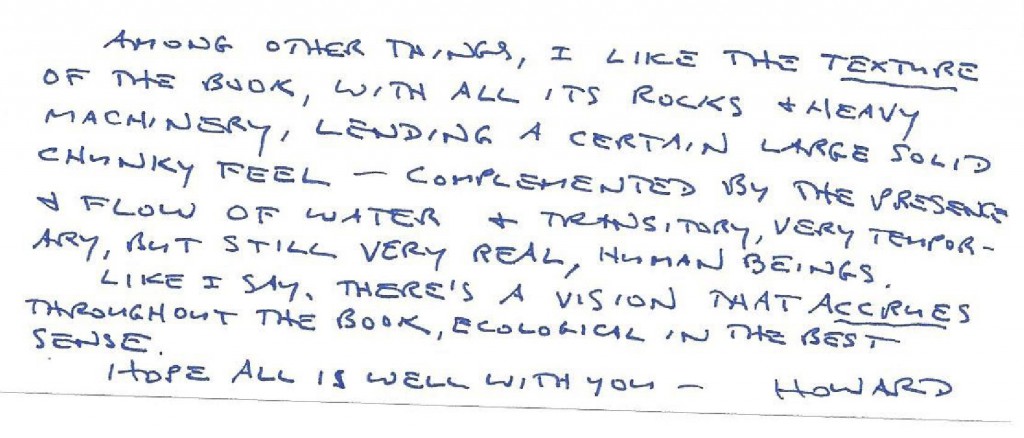 AMONG OTHER THINGS, I LIKE THE TEXTURE
OF THE BOOK, WITH ALL ITS ROCKS & HEAVY
MACHINERY, LENDING A CERTAIN LARGE SOLID
CHUNKY FEEL — COMPLEMENTED BY THE PRESENCE
& FLOW OF WATER & TRANSITORY, VERY TEMPOR-
ARY, BUT STILL VERY REAL, HUMAN BEINGS.
LIKE I SAY. THERE'S A VISION THAT ACCRUES
THROUGHOUT THE BOOK, ECOLOGICAL IN THE BEST
SENSE.
HOPE ALL IS WELL WITH YOU — HOWARD